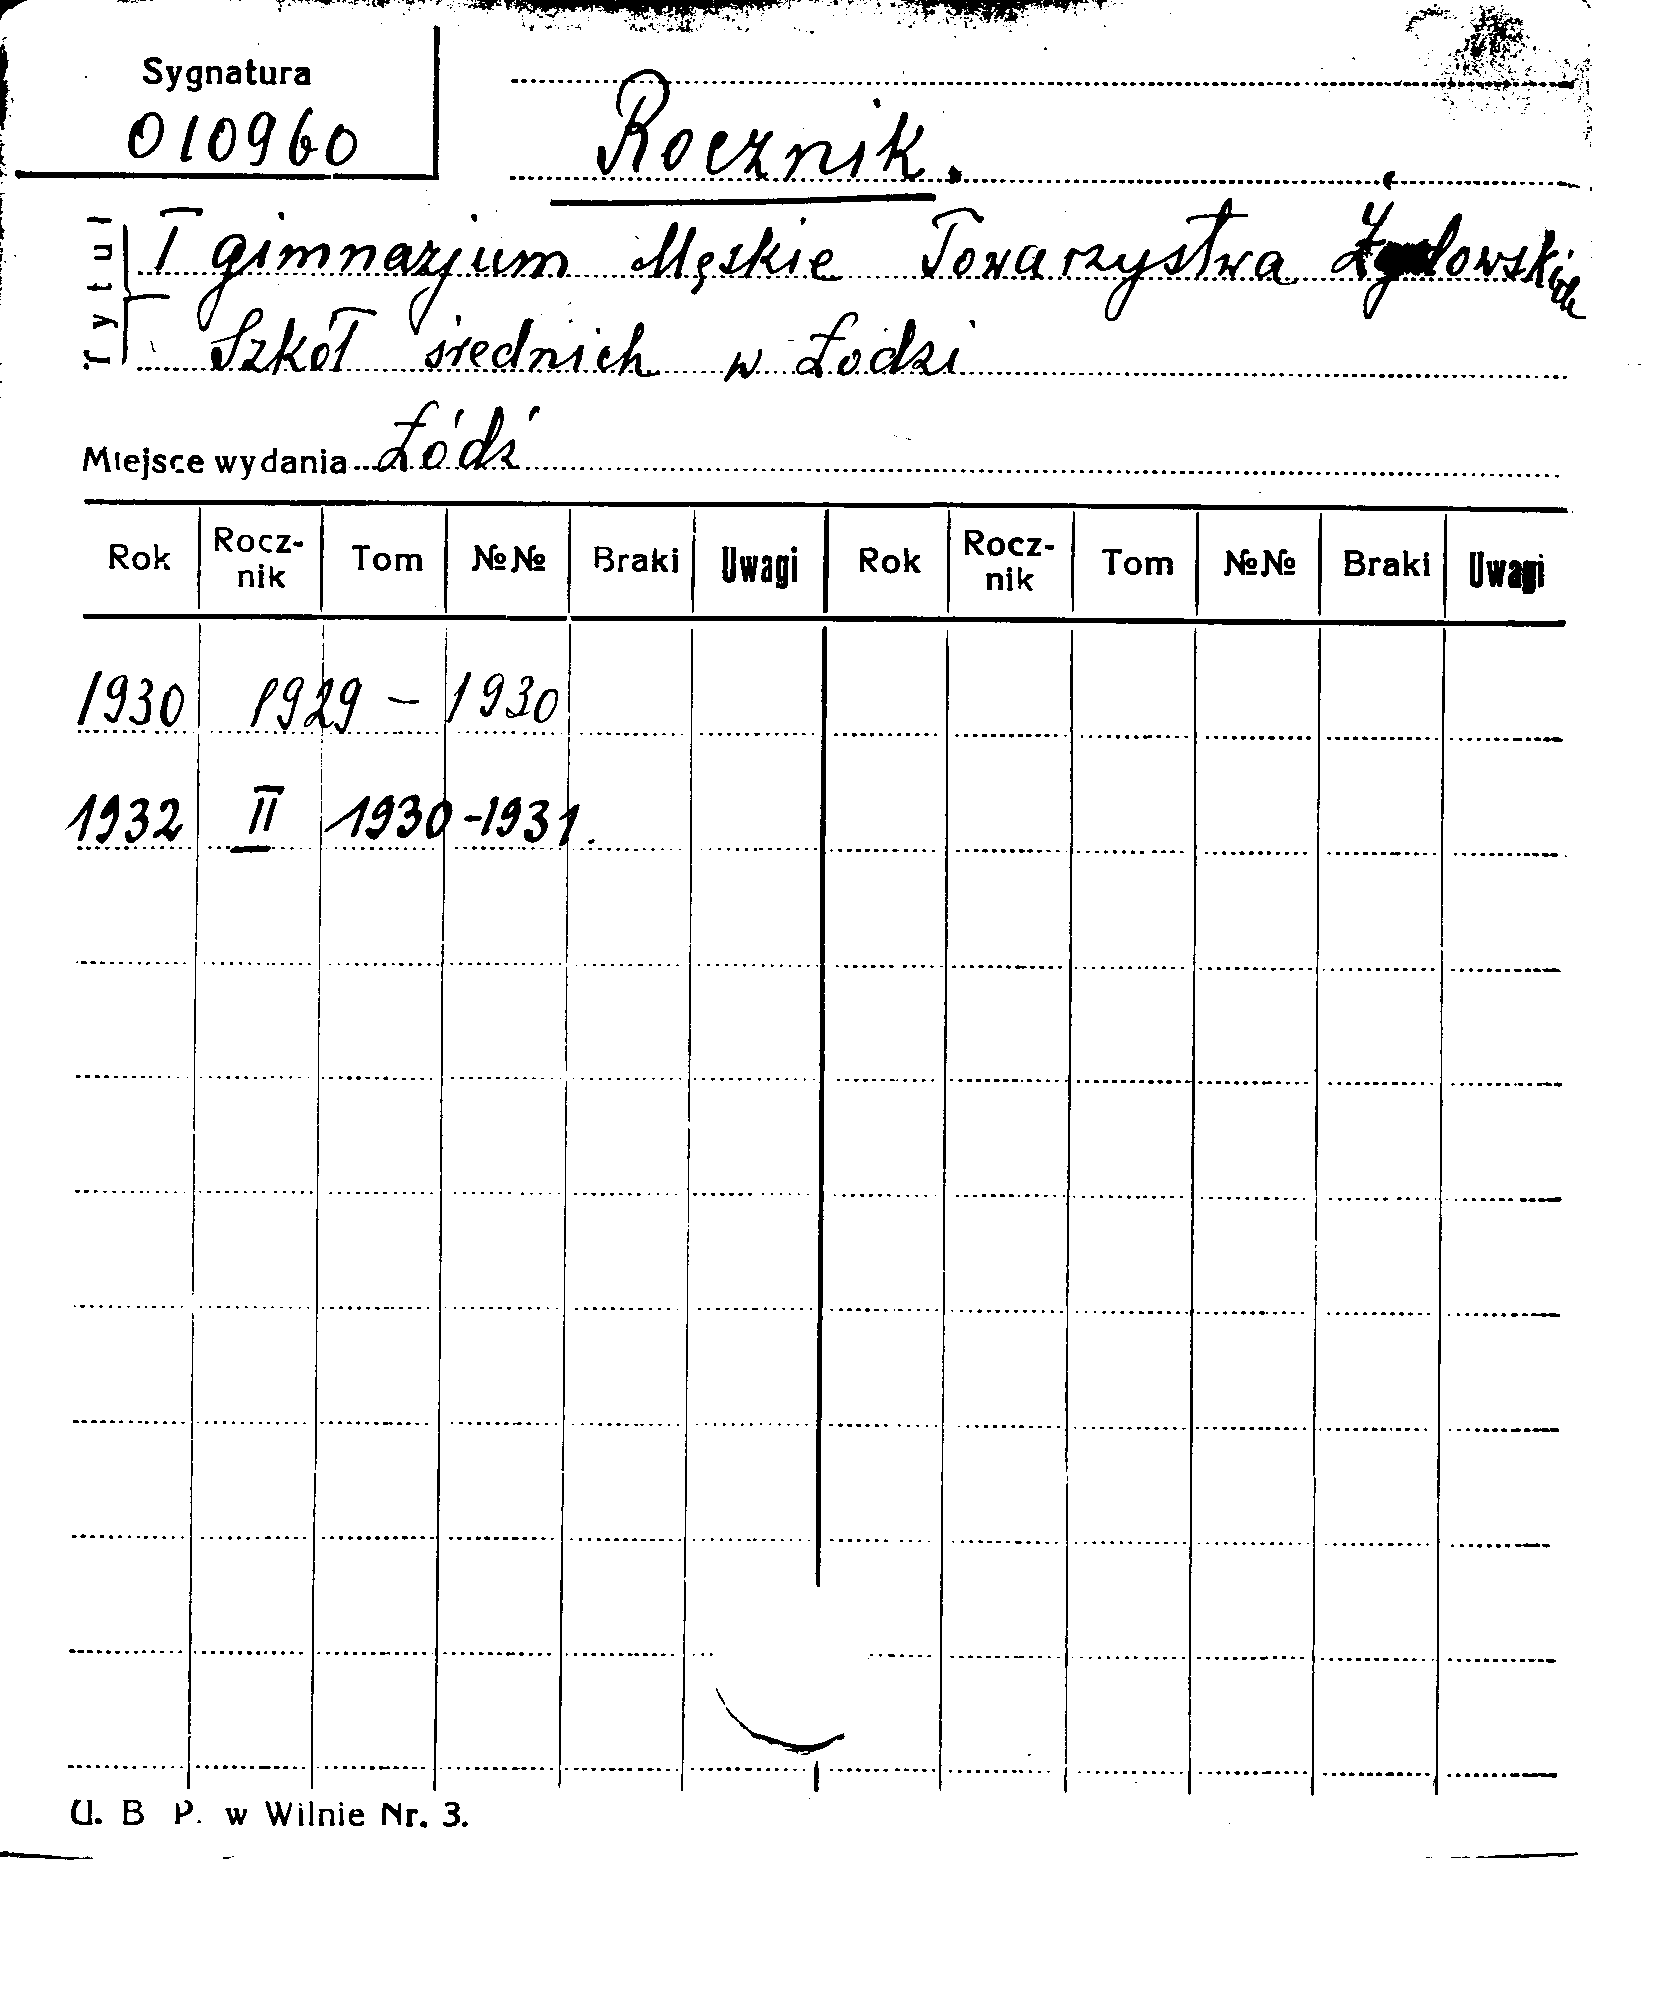 Sygnatura
010960
Rocznik.
Tytuł
I gimnazjum Męskie Towarzystwa Żydowskich
Szkół średnich w Łodzi
Miejsce wydania Łódź
Rok Rocz-nik Tom №№ Braki Uwagi Rok Rocz-nik Tom №№ Braki Uwagi
1930 1929 – 1930
1932 II 1930-1931.
U. B P. w Wilnie Nr. 3.